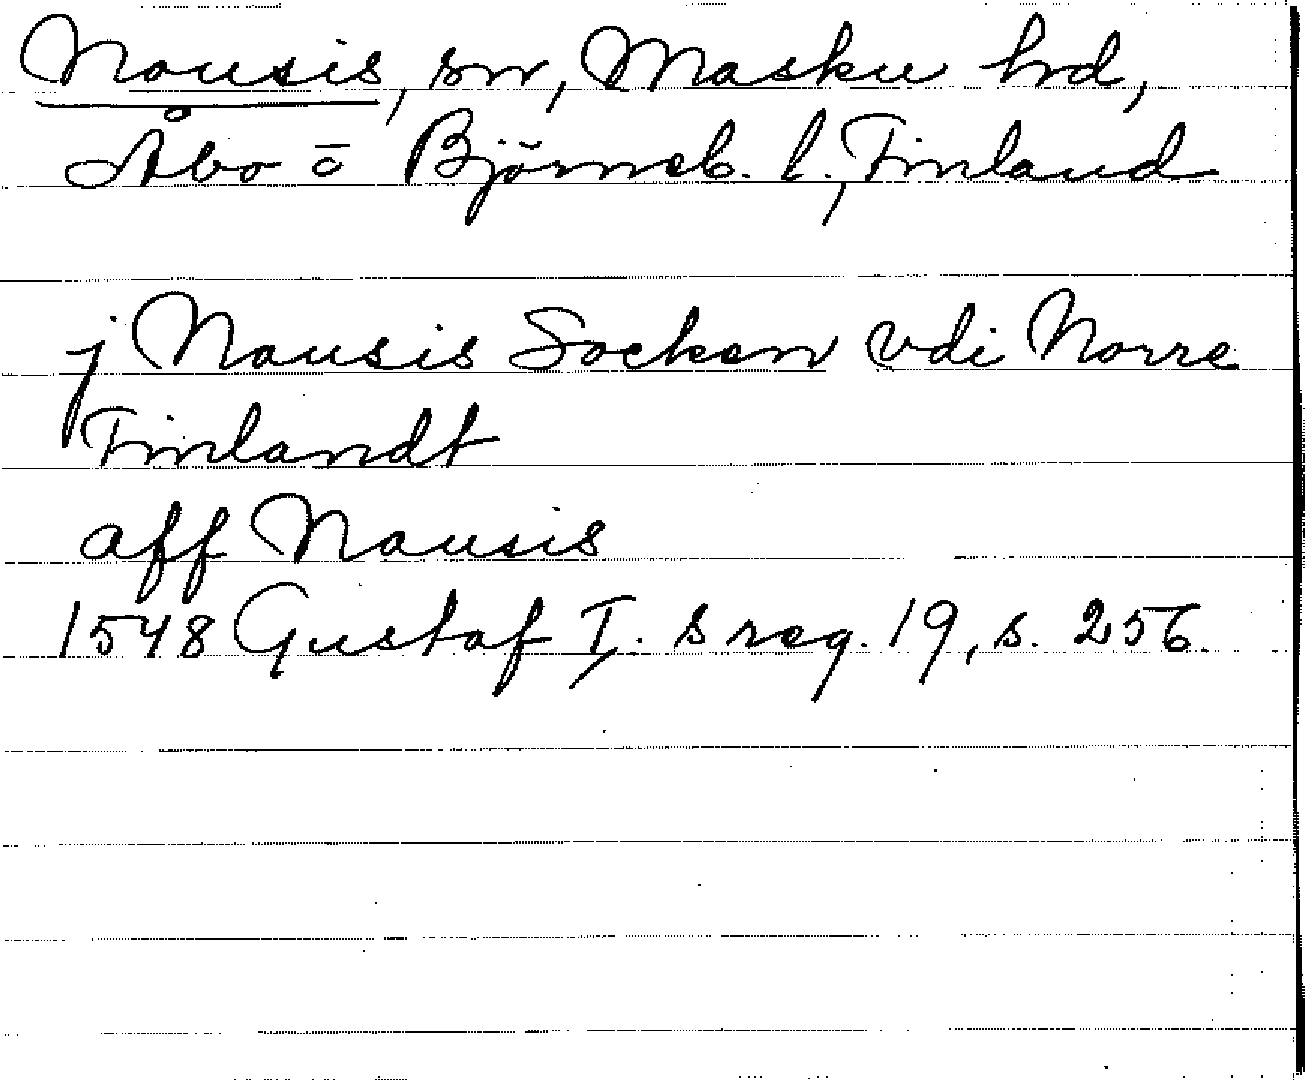 Nousis, sn, Masku hrd,
Åbo o Björneb. l., Finland
j Nousis Socken vdi Norre
Finlandt
aff Nousis
1548 Gustaf I:s reg. 19, s. 256.